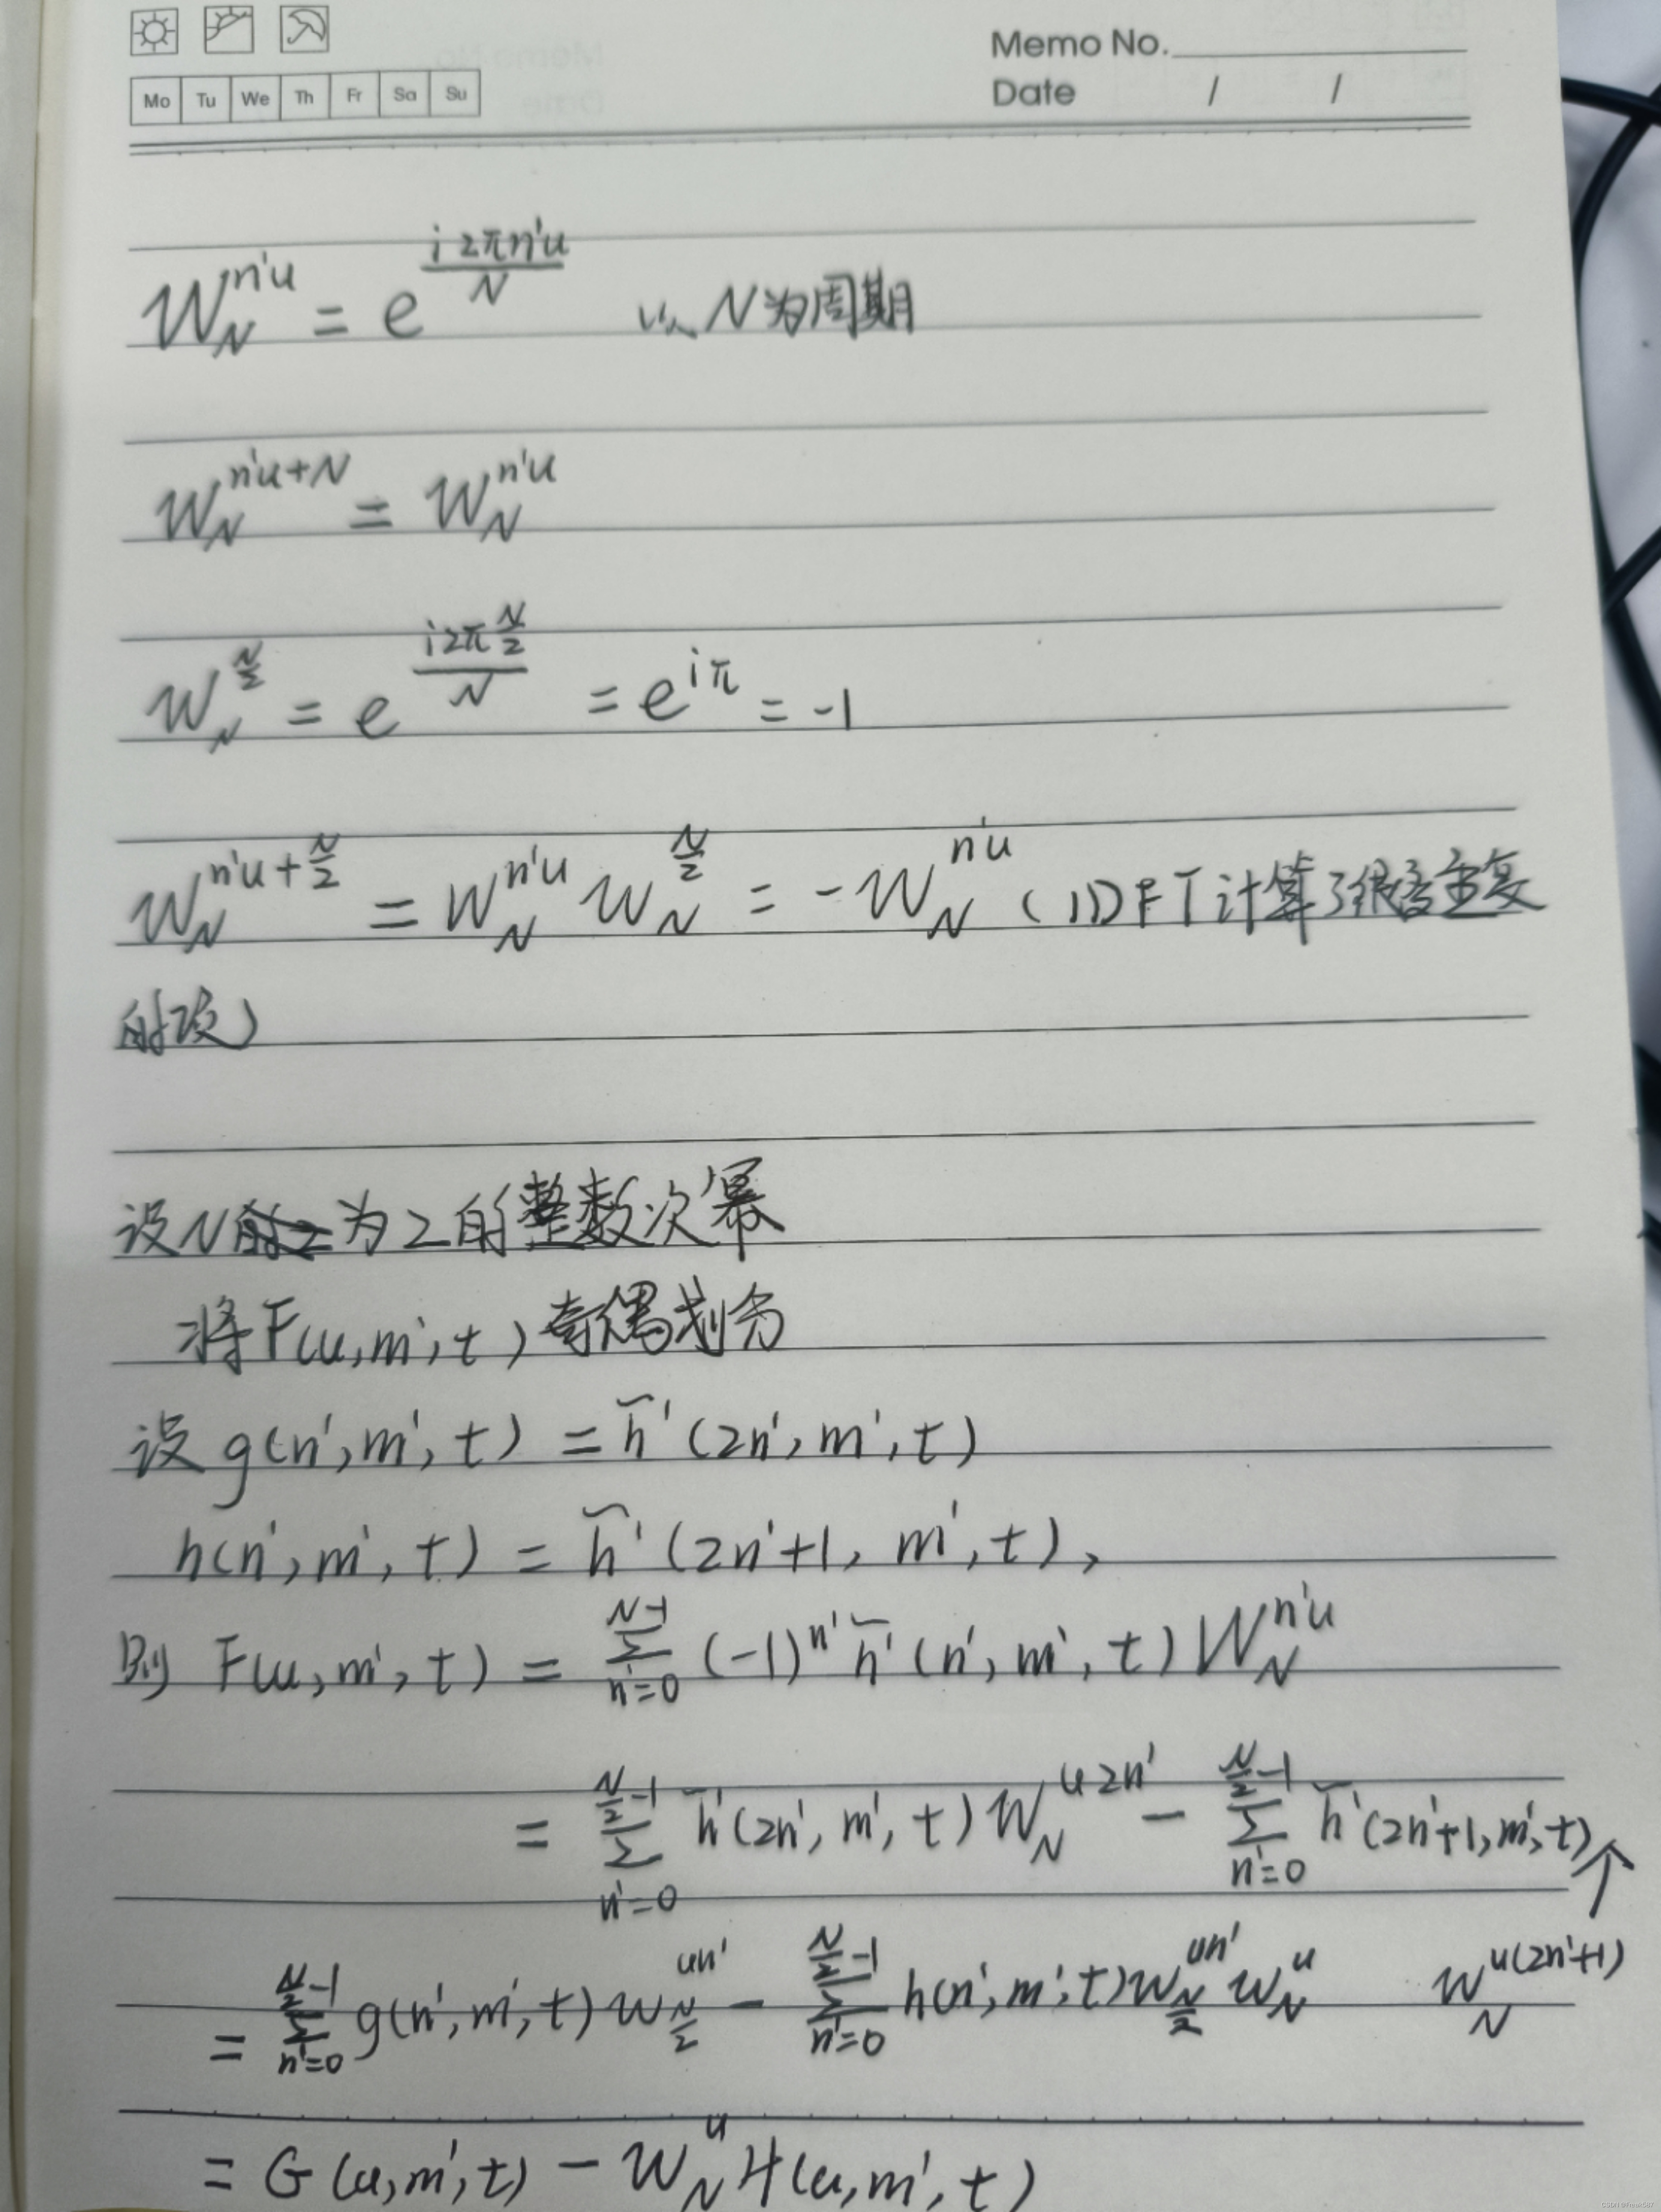 Memo No.
Mo Tu We Th Fr Sa Su
Date / /
W_N^{n'u} = e^{\frac{i2πn'u}{N}} 以N为周期
W_N^{n'u+N} = W_N^{n'u}
W_N^{\frac{N}{2}} = e^{\frac{i2π\frac{N}{2}}{N}} = e^{iπ} = -1
W_N^{n'u+\frac{N}{2}} = W_N^{n'u} W_N^{\frac{N}{2}} = -W_N^{n'u} (IDFT计算了很多重复
的项)
设N为2的整数次幂
将F(u,m',t)奇偶划分
设g(n',m',t) = \tilde{h}'(2n',m',t)
h(n',m',t) = \tilde{h}'(2n'+1,m',t),
则 F(u,m',t) = \sum_{n'=0}^{N-1} (-1)^{n'} \tilde{h}'(n',m',t) W_N^{n'u}
= \sum_{n'=0}^{\frac{N}{2}-1} \tilde{h}'(2n',m',t) W_N^{u2n'} - \sum_{n'=0}^{\frac{N}{2}-1} \tilde{h}'(2n'+1,m',t) ↑
= \sum_{n'=0}^{\frac{N}{2}-1} g(n',m',t) W_{\frac{N}{2}}^{un'} - \sum_{n'=0}^{\frac{N}{2}-1} h(n',m',t) W_{\frac{N}{2}}^{un'} W_N^u W_N^{u(2n'+1)}
= G(u,m',t) - W_N^u H(u,m',t)